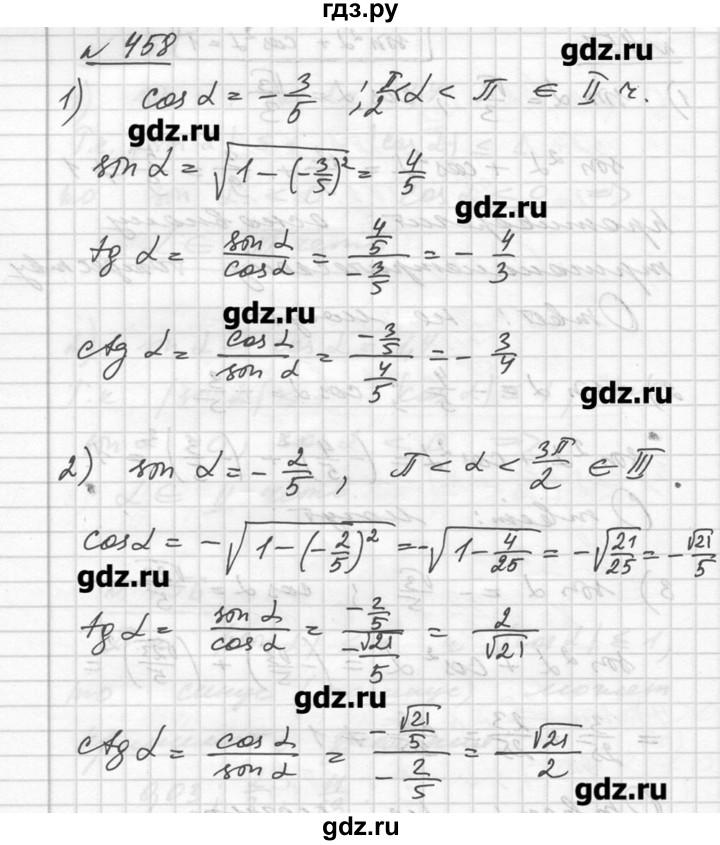 гдз.ру
№ 458
gdz.ru
1) cos α = -3/5 ; π/2 < α < π ∈ II ч.
gdz.ru
sin α = √(1 - (-3/5)²) = 4/5
gdz.ru
tg α = sin α / cos α = (4/5) / (-3/5) = -4/3
gdz.ru
ctg α = cos α / sin α = (-3/5) / (4/5) = -3/4
gdz.ru
2) sin α = -2/5 , π < α < 3π/2 ∈ III .
cos α = -√(1 - (-2/5)²) = -√(1 - 4/25) = -√(21/25) = -√21/5
gdz.ru
tg α = sin α / cos α = (-2/5) / (-√21/5) = 2/√21
gdz.ru
ctg α = cos α / sin α = (-√21/5) / (-2/5) = √21/2
gdz.ru
gdz.ru